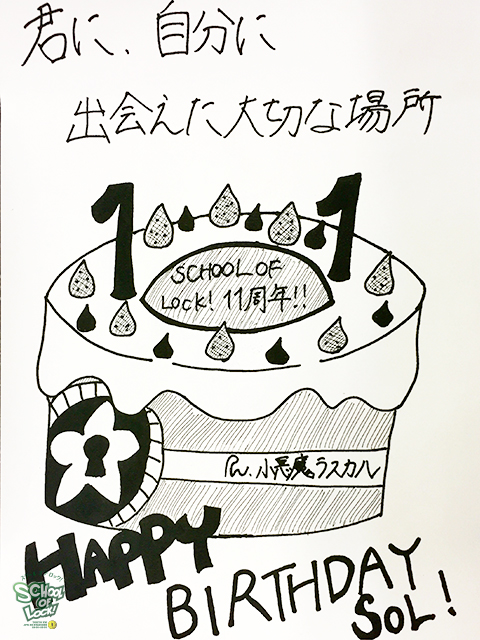 君に、自分に
出会えた大切な場所
11
SCHOOL OF
Lock! 11周年!!
Pn.小悪魔ラスカル
HAPPY
BIRTHDAY
SOL!
SCHOOL
OF
LOCK!